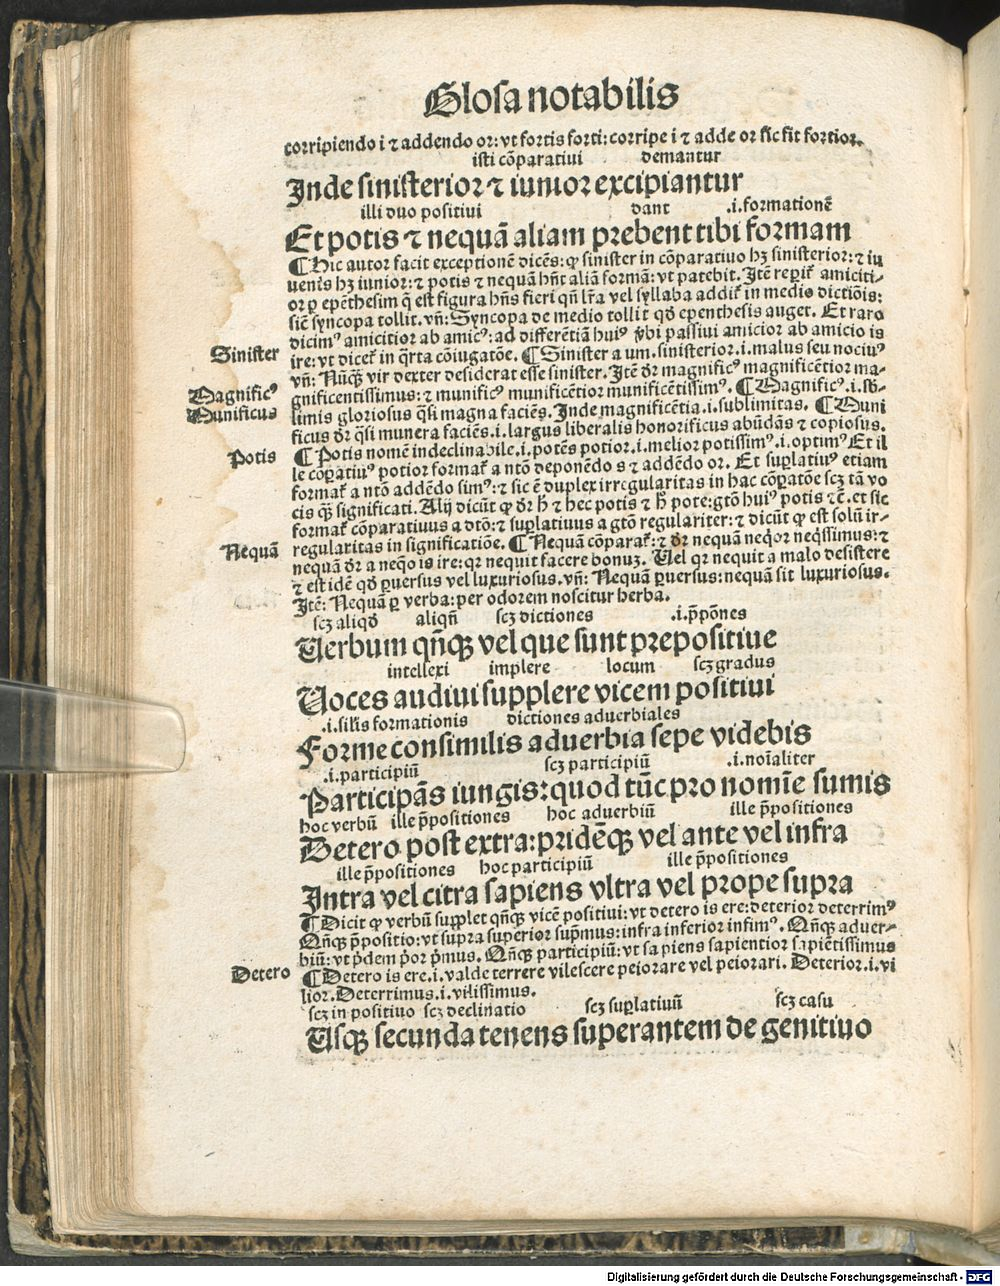 Glosa notabilis
corripiendo i ⁊ addendo or: vt fortis forti: corripe i ⁊ adde or sic fit fortior.
isti cōparatiui demantur
Inde sinisterior ⁊ iunior excipiantur
illi duo positiui dant .i. formationē
Et potis ⁊ nequā aliam prebent tibi formam
¶ Hic autor facit exceptionē dicēs: ꝙ sinister in cōparatiuo hꝫ sinisterior: ⁊ iu
uenis hꝫ iunior: ⁊ potis ⁊ nequā hn̄t aliā formā: vt patebit. Itē reꝑit̉ amiciti-
or ꝑ epēthesim q̄ est figura hn̄s fieri qn̄ lr̄a vel syllaba addit̉ in medio dictiōis:
sic̄ syncopa tollit. vn̄: Syncopa de medio tollit qd̄ epenthesis auget. Et raro
dicimꝰ amicitior ab amicꝰ: ad differētiā huiꝰ v̄bi passiui amicior ab amicio is
Sinister
ire: vt dicet̉ in q̄rta cōiugatōe. ¶ Sinister a um. sinisterior .i. malus seu nociuꝰ
vn̄: Nūꝙ̄ vir dexter desiderat esse sinister. Itē dr̄ magnificꝰ magnificētior ma-
Magnificꝰ
gnificentissimus: ⁊ munificꝰ munificētior munificētissimꝰ. ¶ Magnificꝰ .i. sb̄-
Munificus
limis gloriosus q̄si magna faciēs. Inde magnificētia .i. sublimitas. ¶ Muni
ficus dr̄ q̄si munera faciēs .i. largus liberalis honorificus abūdās ⁊ copiosus.
Potis
¶ Potis nomē indeclinabile .i. potēs potior .i. melior potissimꝰ .i. optimꝰ Et il
le cōꝑatiuꝰ potior format̉ a ntō deponēdo s ⁊ addēdo or. Et suꝑlatiuꝰ etiam
format̉ a ntō addēdo simꝰ: ⁊ sic ē duplex irregularitas in hac cōꝑatōe scꝫ tā vo
cis ꝙ̄ significati. Alij dicūt ꝙ dr̄ h̄ ⁊ hec potis ⁊ h̄ pote: gtō huiꝰ potis ⁊c̄. et sic
format̉ cōparatiuus a dtō: ⁊ suꝑlatiuus a gtō regulariter: ⁊ dicūt ꝙ est solū ir-
Nequā
regularitas in significatiōe. ¶ Nequā cōparat̉: ⁊ dr̄ nequā neq̄or neq̄ssimus: ⁊
nequā dr̄ a neq̄o is ire: qr nequit facere bonuꝫ. Uel qr nequit a malo desistere
⁊ est idē qd̄ ꝑuersus vel luxuriosus. vn̄: Nequā ꝑuersus: nequā sit luxuriosus.
Itē: Nequā ꝑ verba: per odorem noscitur herba.
scꝫ aliqd̄ aliqn̄ scꝫ dictiones .i. p̄pōnes
Uerbum qn̄ꝙ vel que sunt prepositiue
intellexi implere locum scꝫ gradus
Uoces audiui supplere vicem positiui
.i. sil̄is formationis dictiones aduerbiales
Forme consimilis aduerbia sepe videbis
.i. participiū scꝫ participiū .i. noīaliter
Participās iungis: quod tūc pro nomīe sumis
hoc verbū ille p̄positiones hoc aduerbiū ille p̄positiones
Detero post extra: pridēꝙ vel ante vel infra
ille p̄positiones hoc participiū ille p̄positiones
Intra vel citra sapiens vltra vel prope supra
¶ Dicit ꝙ verbū supplet qn̄ꝙ vicē positiui: vt detero is ere: deterior deterrimꝰ
Qn̄ꝙ p̄positio: vt supra superior sup̄mus: infra inferior infimꝰ. Qn̄ꝙ aduer-
biū: vt p̄dem p̄or p̄mus. Qn̄ꝙ participiū: vt sapiens sapientior sapiētissimus
Detero
¶ Detero is ere .i. valde terrere vilescere peiorare vel peiorari. Deterior .i. vi
lior. Deterrimus .i. vilissimus.
scꝫ in positiuo scꝫ declinatio scꝫ suꝑlatiuū scꝫ casu
Usꝙ secunda tenens superantem de genitiuo
Digitalisierung gefördert durch die Deutsche Forschungsgemeinschaft - DFG